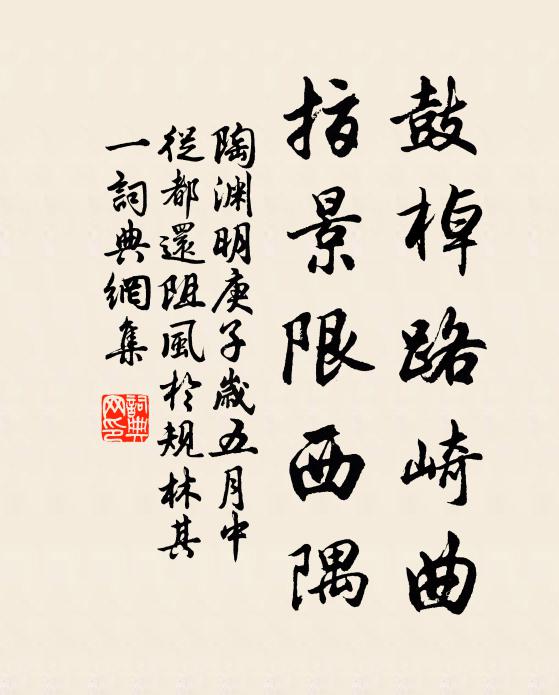 鼓棹路崎曲
指景限西隅
陶渊明庚子歲五月中
從都還阻風於規林其
一詞典網集
詞典
网印